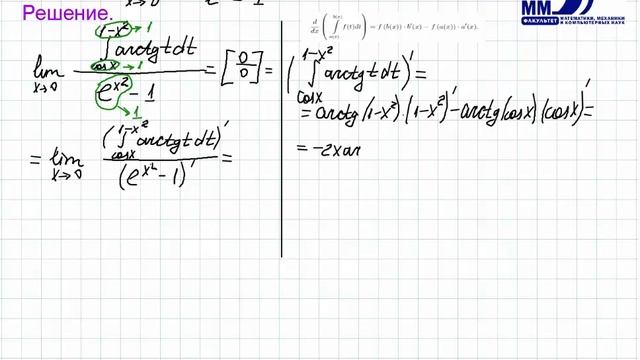 Решение.
lim x→0 (∫_{cosx}^{1-x²} arctgt dt) / (e^{x²} - 1) = [0/0] =
1-x² → 1
cosx → 1
→ 1
= lim x→0 (∫_{cosx}^{1-x²} arctgt dt)' / (e^{x²} - 1)' =
d/dx (∫_{a(x)}^{b(x)} f(t)dt) = f(b(x)) · b'(x) − f(a(x)) · a'(x).
(∫_{cosx}^{1-x²} arctgt dt)' =
= arctg(1-x²)·(1-x²)' - arctg(cosx)(cosx)' =
= -2x ar
ММ
ФАКУЛЬТЕТ
МАТЕМАТИКИ, МЕХАНИКИ
И КОМПЬЮТЕРНЫХ НАУК